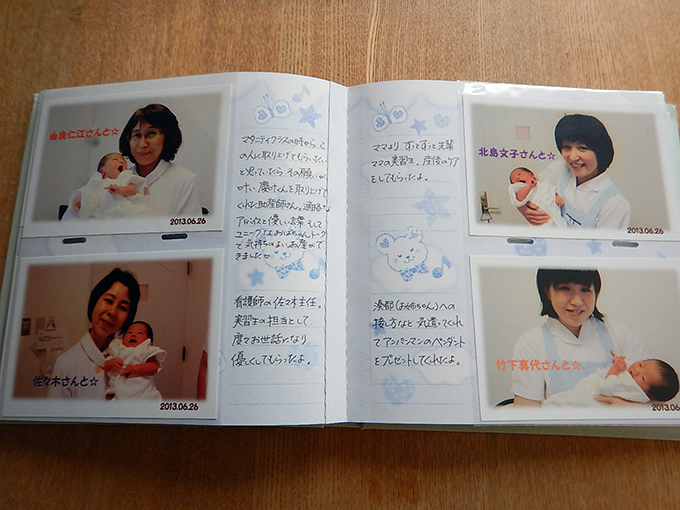 由良仁江さんと☆
2013.06.26
マタニティクラスの時から、こ
の人に取り上げてもらいたい
と思っていたら その願いが
叶い、慶汁んを取り上げて
くれた助産師さん。適格な
アドバイスと優しい言葉、そして
ユニークなおばちゃんトーク
で気持ちのよいお産ので
きました♡
佐々木さんと☆
2013.06.26
看護師の佐々木主任。
実習生の担当として
度々お世話になり
優しくしてもらったよ。
ママより、ずっとずっと先輩
ママの実習生。産後のケア
をしてもらったよ。
北島文子さんと☆
2013.06.26
湊都(お姉ちゃん)への
接し方など 気遣ってくれ
てアンパンマンのペンダント
をプレゼントしてくれたよ。
竹下真代さんと☆
2013.06.26